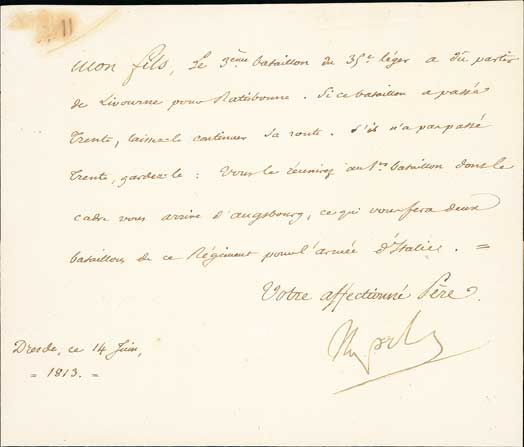 Mon fils, Le 3ème bataillon du 35e léger a dû partir
de Livourne pour Ratisbonne. Si ce bataillon a passé
Trente, laissez-le continuer sa route. S'il n'a pas passé
Trente, gardez-le : Vous le réunirez au 1er bataillon dont le
cadre vous arrive d'augsbourg, ce qui vous fera deux
bataillons de ce Régiment pour l'armée d'Italie. =
Votre affectionné Père.
Dresde, ce 14 Juin,
= 1813. =